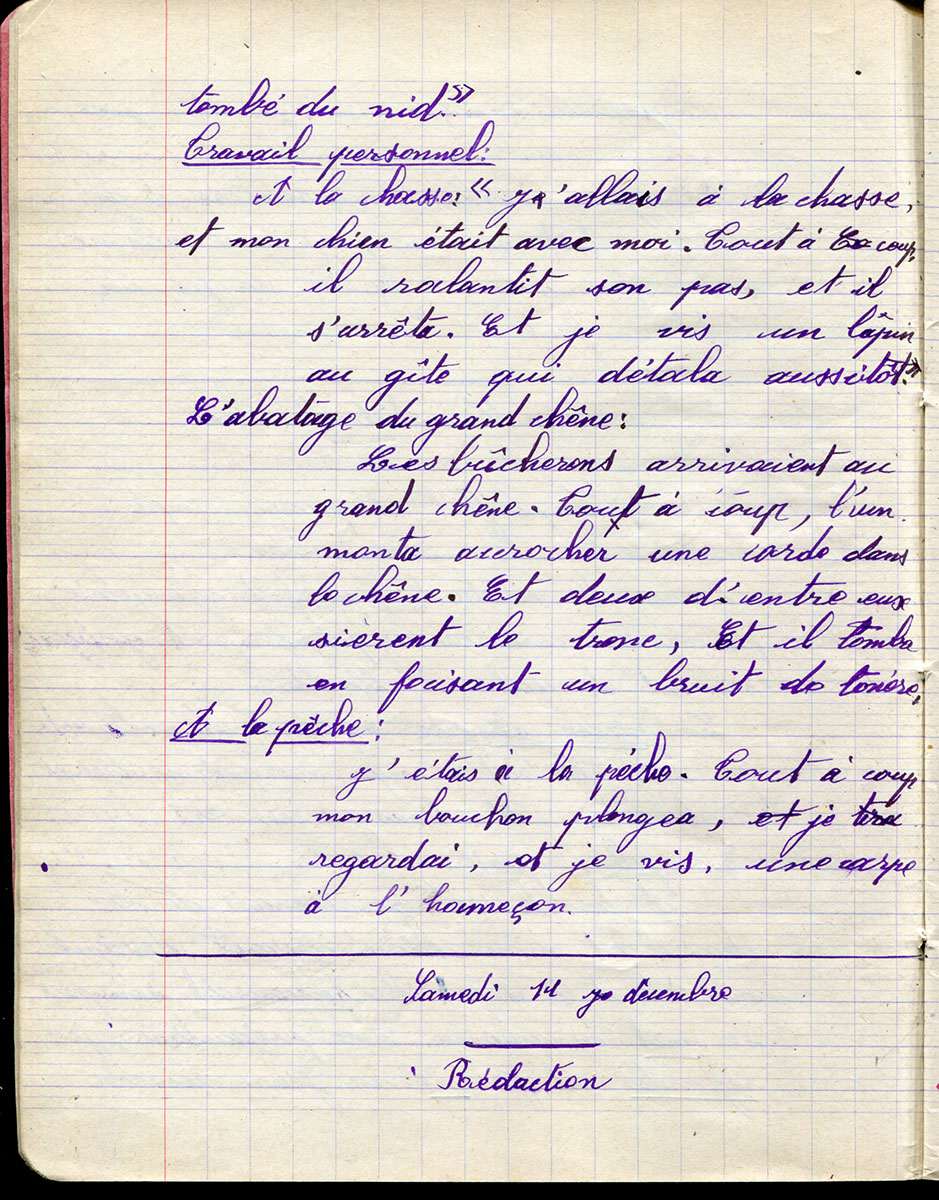 tombé du nid. »
Travail personnel:
A la chasse: « J'allais à la chasse,
et mon chien était avec moi. Tout à coup,
il ralantit son pas, et il
s'arrêta. Et je vis un lâpin
au gîte qui détala aussitôt. »
L'abatage du grand chêne:
Les bûcherons arrivaient au
grand chêne. Tout à coup, l'un
monta acrocher une corde dans
le chêne. Et deux d'entre eux
sièrent le tronc, Et il tomba
en faisant un bruit de tonère,
A la pêche:
J'étais à la pêche. Tout à coup
mon bouchon plongea, et je
regardai, et je vis, une carpe
à l'hameçon.
Samedi 14 décembre
Rédaction